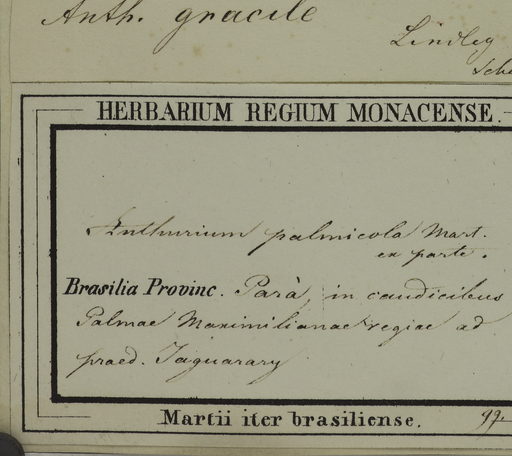 Anth. gracile
Lindley
Sch
HERBARIUM REGIUM MONACENSE.
Anthurium palmicola Mart.
ex parte.
Brasilia Provinc. Parà, in caudicibus
Palmae Maximilianae regiae ad
praed. Jaguarary
Martii iter brasiliense.